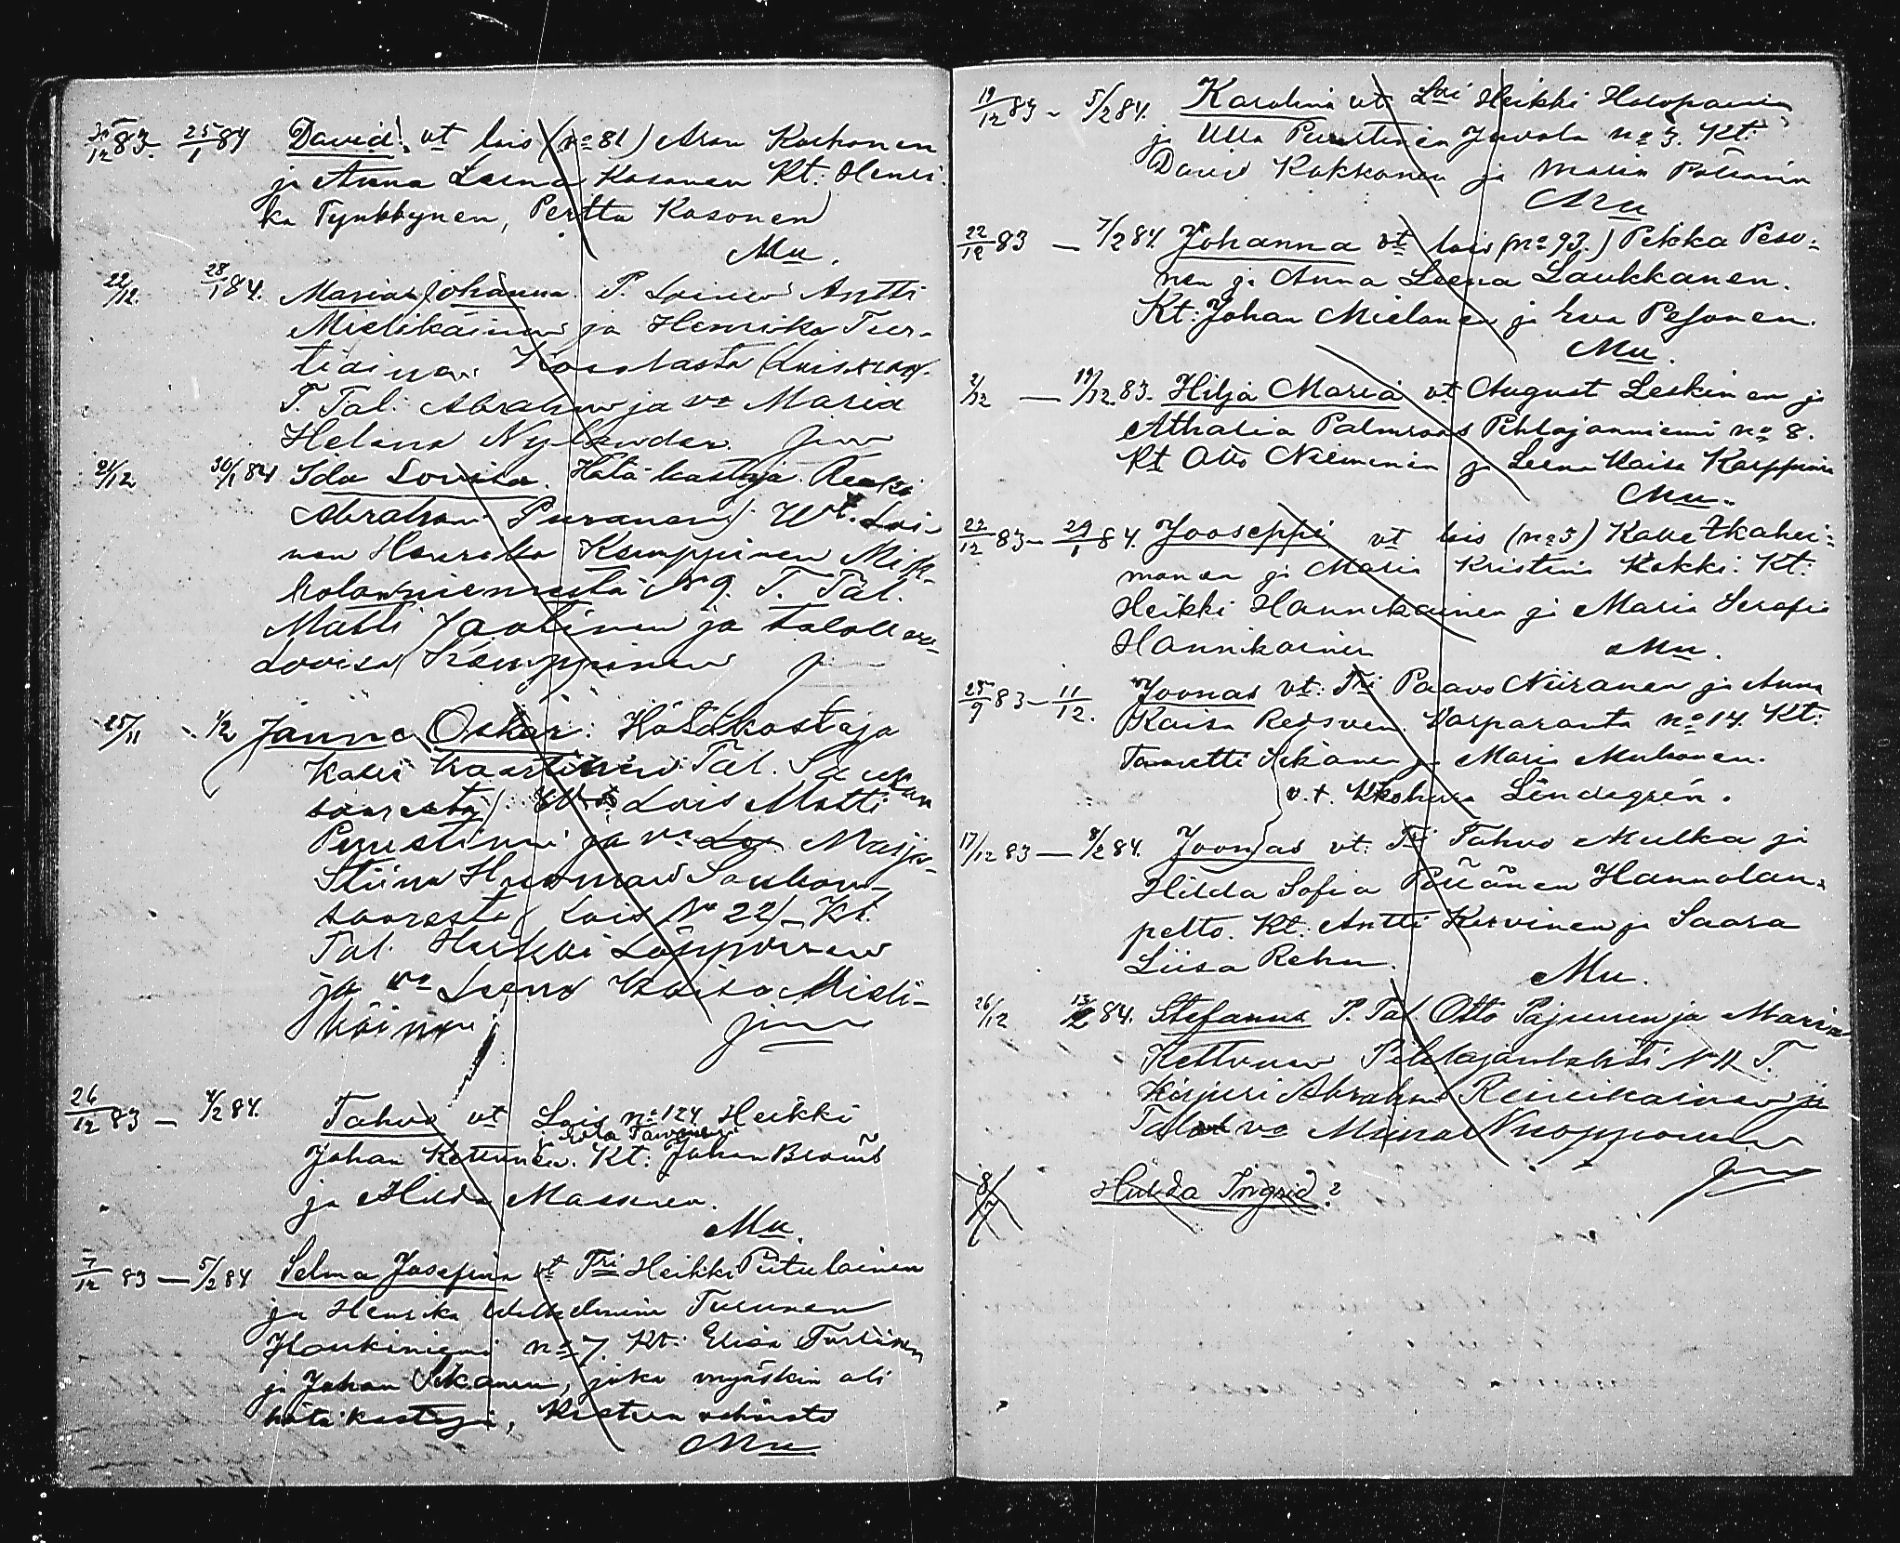 30/12 83. 25/1 84 David! vt lois (no 81) Aron Korhonen
ja Anna Leena Kosonen Kt: Henri-
ka Tynkkynen, Pertta Kosonen
Mu.
22/12. 28/1 84. Maria Johanna. P. Loinen Antti
Mielikäinen ja Henrika Tur-
tiainen
T. Tal. Abraham ja va Maria
Helena Nylander.
21/12 30/1 84 Ida Lovisa. Hätä-kastaja Renki
Abraham Puranen). Wt. Loi-
nen Henrika Kemppinen Mik-
kolanniemestä No 9. T. Tal.
Matti Jantinen ja talollisen
Lovisa Kemppinen
25/11 1/2 Janne Oskar: Hätäkastaja
Kalle Kaartinen Tal. Soukan
saaresta). Wt Lois Matti
Puustinen ja va Maija-
Stiina Soukon-
saaresta (Lois No 22) – Kt.
Tal. Heikki Löppönen
ja va Leena Kaisa Mieli-
käinen
26/12 83 – 4/2 84. Tahvo vt Lois no 124 Heikki
Johan Ketunen. Kt: Johan
ja Hilda Massinen.
Mu.
7/12 83 – 5/2 84 Selma Josefina vt Tri Heikki Piitulainen
ja Henrika Wilhelmina Turunen
Haukiniemi no 7. Kt: Elisa Turtiainen
ja Johan Ikänen, joka myöskin oli
hätäkastaja, Risteen
Mu
19/12 83 – 5/2 84. Karolina vt Loi Heikki Holopainen
ja Ulla Puustinen Juvola no 3. Kt:
David Kokkonen ja Maria Pöllänen
Mu
22/12 83 – 7/2 84. Johanna vt lois (no 93.) Pekka Peso-
nen ja Anna Leena Laukkanen.
Kt: Johan Mielonen ja Eva Pesonen.
Mu.
2/12 – 19/12 83. Hilja Maria vt August Leskinen ja
Athalia Palmroos Pihlajaniemi no 8.
Kt Otto Nieminen ja Leena Kaisa Karppinen
Mu.
22/12 83 – 29/1 84. Jooseppi vt lois (no 5) Kalle Ikähei-
monen ja Maria Kristina Kokki. Kt:
Heikki Hannikainen ja Maria Serafia
Hannikainen Mu.
25/9 83 – 11/12. Joonas vt: Tri Paavo Niiranen ja Anna
Kaisa Reijonen Varparanta no 14. Kt:
Taavetti Ikänen ja Maria Muhonen.
v.t. Lindegrén.
17/12 83 – 8/2 84. Joonas vt: Tri Tahvo Mulka ja
Hilda Sofia Pöllänen Hannolan-
pelto. Kt: Antti Kervinen ja Saara
Liisa Rehn. Mu.
26/12 13/2 84. Stefanus P. Tal. Otto Pajunen ja Maria
Kettunen Pihlajanlahti No 11 T.
Kirjuri Abraham Reinikainen ja
Tal va Miina Nuopponen
8/7 Hulda Ingrid?